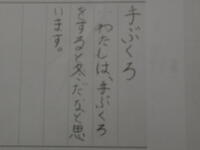 手ぶくろ
わたしは、手ぶくろ
をすると冬だなと思
います。